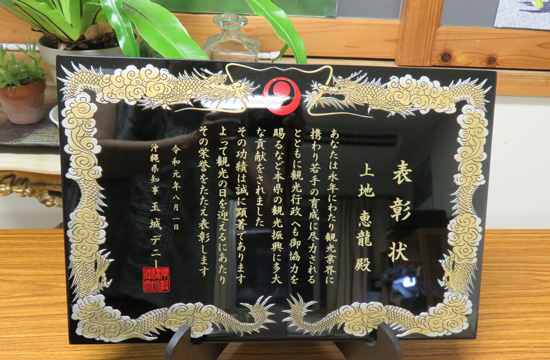 表彰状
上地 恵龍 殿
あなたは永年にわたり観光業界に
携わり若手の育成に尽力される
とともに観光行政へも御協力を
賜るなど本県の観光振興に多大
な貢献をされました
その功績は誠に顕著であります
よって観光の日を迎えるにあたり
その栄誉をたたえ表彰します
令和元年八月一日
沖縄県知事 玉城デニー